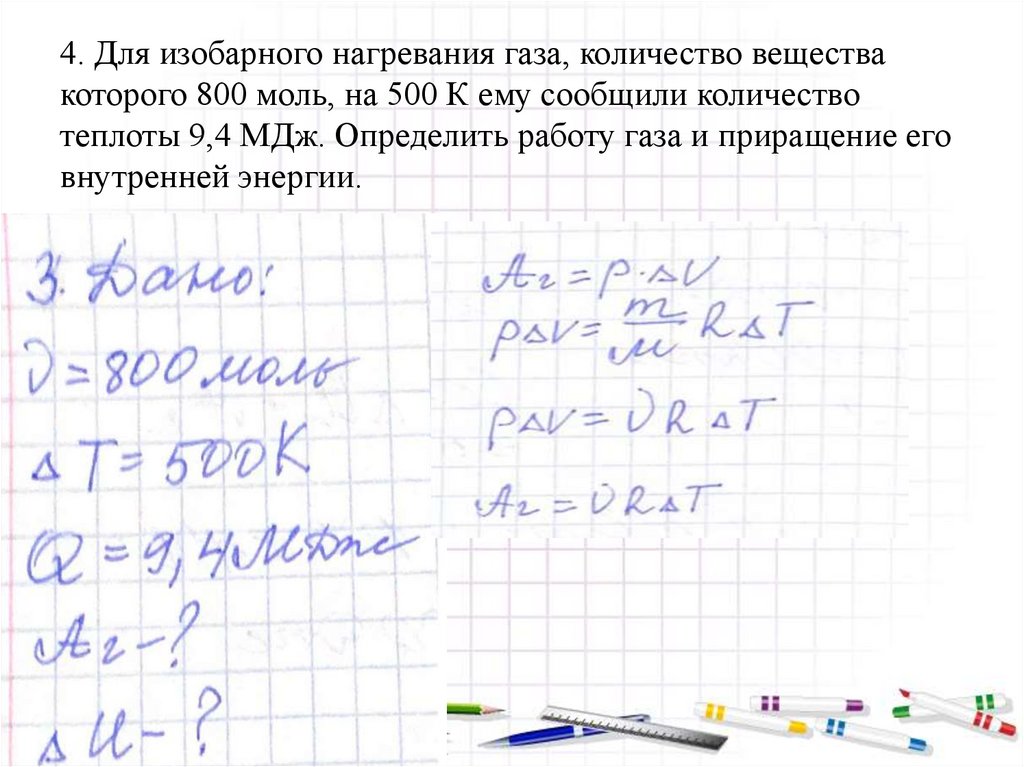 4. Для изобарного нагревания газа, количество вещества
которого 800 моль, на 500 К ему сообщили количество
теплоты 9,4 МДж. Определить работу газа и приращение его
внутренней энергии.
3. Дано:
ν = 800 моль
ΔT = 500К
Q = 9,4 МДж
Aг - ?
Δ U - ?
Aг = p · ΔV
pΔV = m/M R ΔT
pΔV = ν R ΔT
Aг = ν R ΔT